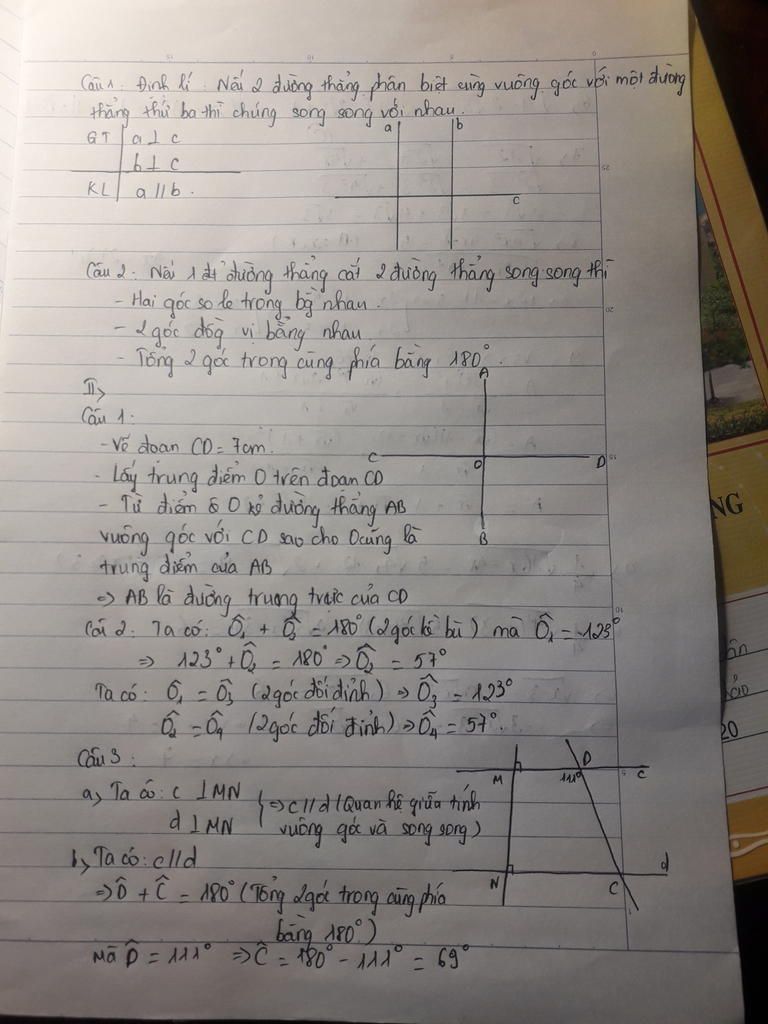 Câu 1: Định lí: Nếu 2 đường thẳng phân biệt cùng vuông góc với một đường
thẳng thứ ba thì chúng song song với nhau.
GT a ⊥ c
b ⊥ c
KL a // b.
a b
c
Câu 2: Nếu 1 đường thẳng cắt 2 đường thẳng song song thì
- Hai góc so le trong bg nhau.
- 2 góc đồg vị bằng nhau
- Tổng 2 góc trong cùng phía bằng 180°.
II>
Câu 1:
- Vẽ đoạn CD = 7cm.
- Lấy trung điểm O trên đoạn CD
- Từ điểm O kẻ đường thẳng AB
vuông góc với CD sao cho O cũng là
trung điểm của AB
=> AB là đường trung trực của CD
A
C O D
B
Câu 2: Ta có: Ô1 + Ô2 = 180° (2 góc kề bù) mà Ô1 = 123°
=> 123° + Ô2 = 180° => Ô2 = 57°
Ta có: Ô1 = Ô3 (2 góc đối đỉnh) => Ô3 = 123°
Ô2 = Ô4 (2 góc đối đỉnh) => Ô4 = 57°.
Câu 3:
a, Ta có: c ⊥ MN
d ⊥ MN
=> c // d (Quan hệ giữa tính
vuông góc và song song)
b, Ta có: c // d
=> D̂ + Ĉ = 180° (Tổng 2 góc trong cùng phía
bằng 180°)
Mà D̂ = 111° => Ĉ = 180° - 111° = 69°
M 111° D c
N C d
NG
20